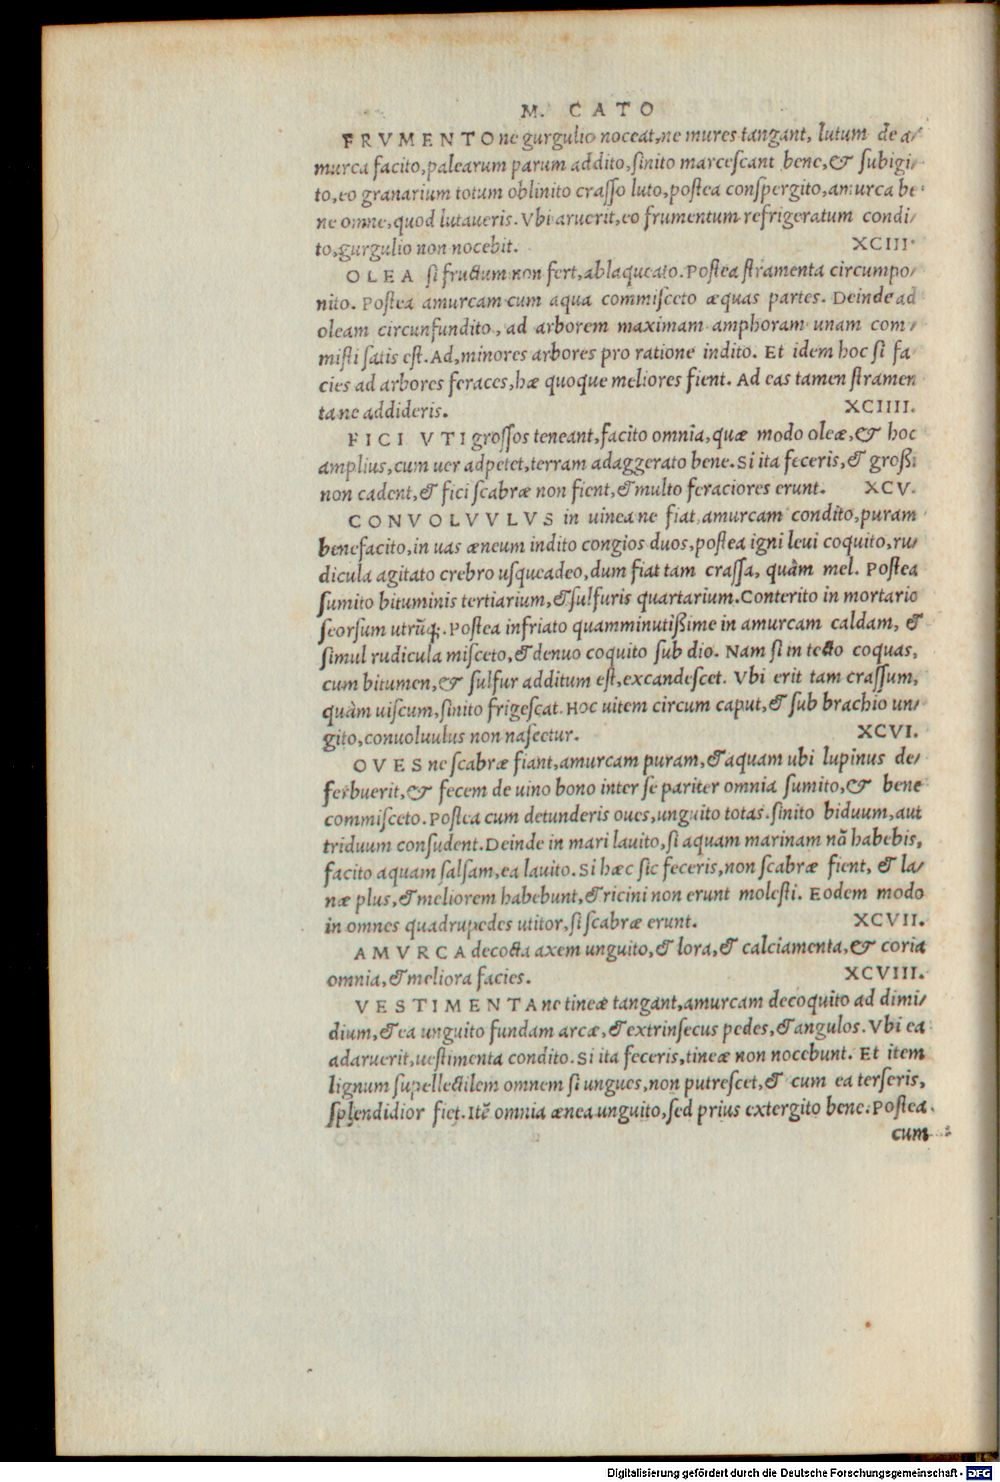 M. CATO
FRVMENTO ne gurgulio noceat, ne mures tangant, lutum de a/
murca facito, palearum parum addito, sinito marcescant bene, & subigi/
to, eo granarium totum oblinito crasso luto, postea conspergito, amurca be
ne omne, quod lutaveris. Vbi aruerit, eo frumentum refrigeratum condi/
to, gurgulio non nocebit. XCIII.
OLEA si fructum non fert, ablaqueato. Postea stramenta circumpo/
nito. Postea amurcam cum aqua commisceto æquas partes. Deinde ad
oleam circunfundito, ad arborem maximam amphoram unam com/
misti satis est. Ad, minores arbores pro ratione indito. Et idem hoc si fa
cies ad arbores feraces, hæ quoque meliores fient. Ad eas tamen stramen
ta ne addideris. XCIIII.
FICI VTI grossos teneant, facito omnia, quæ modo oleæ, & hoc
amplius, cum uer adpetet, terram adaggerato bene. Si ita feceris, & großi
non cadent, & fici scabræ non fient, & multo feraciores erunt. XCV.
CONVOLVVLVS in uinea ne fiat, amurcam condito, puram
benefacito, in uas æneum indito congios duos, postea igni leui coquito, ru/
dicula agitato crebro usqueadeo, dum fiat tam crassa, quàm mel. Postea
sumito bituminis tertiarium, & sulfuris quartarium. Conterito in mortario
seorsum utrũq;. Postea infriato quamminutißime in amurcam caldam, &
simul rudicula misceto, & denuo coquito sub dio. Nam si in tecto coquas,
cum bitumen, & sulfur additum est, excandescet. Vbi erit tam crassum,
quàm uiscum, sinito frigescat. Hoc uitem circum caput, & sub brachio un/
gito, conuoluulus non nascetur. XCVI.
OVES ne scabræ fiant, amurcam puram, & aquam ubi lupinus de/
ferbuerit, & fecem de uino bono inter se pariter omnia sumito, & bene
commisceto. Postea cum detunderis oues, unguito totas. sinito biduum, aut
triduum consudent. Deinde in mari lauito, si aquam marinam nõ habebis,
facito aquam salsam, ea lauito. Si hæc sic feceris, non scabræ fient, & la/
næ plus, & meliorem habebunt, & ricini non erunt molesti. Eodem modo
in omnes quadrupedes utitor, si scabræ erunt. XCVII.
AMVRCA decocta axem unguito, & lora, & calciamenta, & coria
omnia, & meliora facies. XCVIII.
VESTIMENTA ne tineæ tangant, amurcam decoquito ad dimi/
dium, & ea unguito fundam arcæ, & extrinsecus pedes, & angulos. Vbi ea
adaruerit, uestimenta condito. Si ita feceris, tineæ non nocebunt. Et item
lignum supellectilem omnem si ungues, non putrescet, & cum ea terseris,
splendidior fiet. Itẽ omnia ænea unguito, sed prius extergito bene. Postea
cum
Digitalisierung gefördert durch die Deutsche Forschungsgemeinschaft - DFG